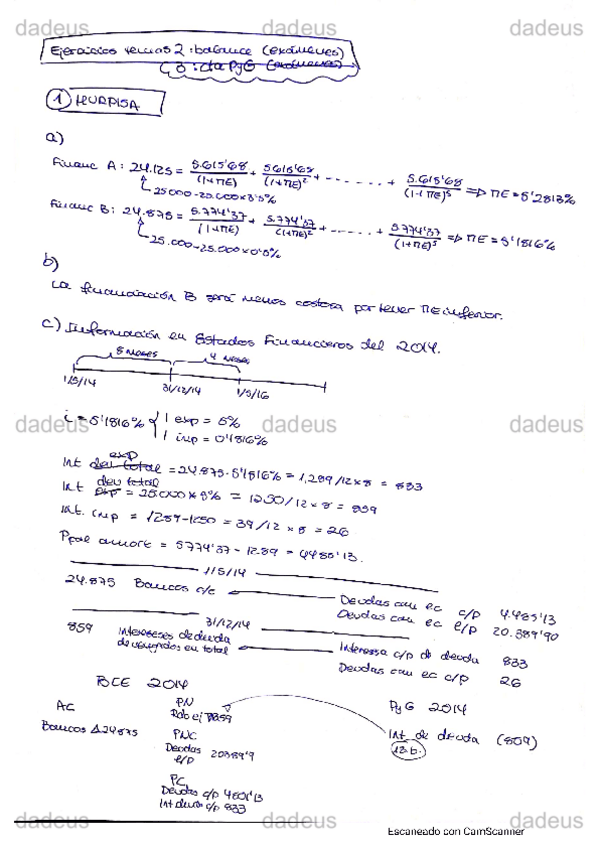 dadeus dadeus dadeus
Ejercicios temas 2: balance (exámenes)
3: cta PyG (exámenes)
1 HURPISA
a)
Financ A: 24.125 = 5.615'68 / (1+TIE) + 5.615'68 / (1+TIE)² + ------ + 5.615'68 / (1+TIE)⁵ => TIE = 5'2813%
25000-25.000x3'5%
Financ B: 24.875 = 5.774'37 / (1+TIE) + 5.774'37 / (1+TIE)² + ----- + 5.774'37 / (1+TIE)⁵ => TIE = 5'1816%
25.000-25.000x0'5%
b)
La financiación B será menos costosa por tener TIE inferior.
c) Información en Estados Financieros del 2014.
8 meses 4 meses
1/5/14 31/12/14 1/5/16
dadeus dadeus dadeus
i = 5'1816% { i exp = 5%
i imp = 0'1816%
exp
Int dev total = 24.875·5'1816% = 1,289/12 x 8 = 833
dev total
Int exp = 25.000 x 5% = 1250/12 x 8 = 859
Int. imp = 1289-1250 = 39/12 x 8 = 26
Ppal amort = 5774'37 - 1289 = 4485'13.
1/5/14
24.875 Bancos c/c
Deudas con ec c/p 4.485'13
Deudas con ec l/p 20.389'90
31/12/14
859 Intereses de deuda
devengados en total
Intereses c/p de deuda 833
Deudas con ec c/p 26
BCE 2014
AC PN PyG 2014
Rdo ej 859
Bancos Δ24875 PNC Int de deuda (859)
Deudas 20389'9
l/p
PC
Deudas c/p 4801'13
Int deuda c/p 833
dadeus dadeus dadeus
Escaneado con CamScanner